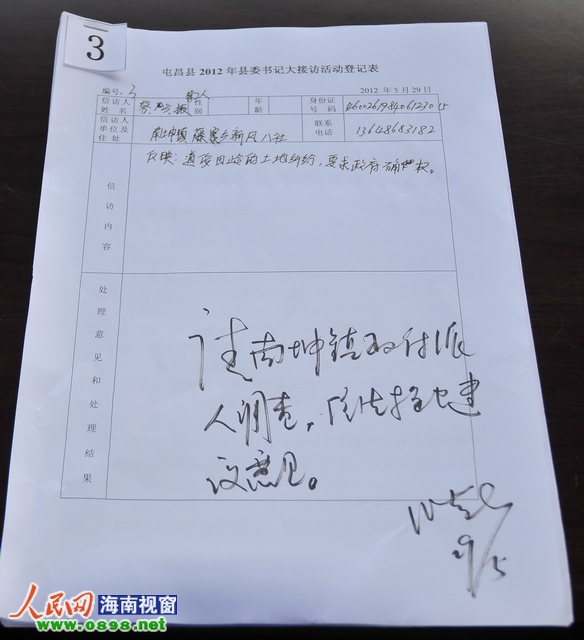 3
屯昌县2012年县委书记大接访活动登记表
编号：3
2012年5月29日
信访人姓名
性别
年龄
身份证号码
信访人单位及住址
南坤镇 新风八社
联系电话 13648683182
信访内容
反映：道 岭的土地纠纷，要求政府确权。
处理意见和处理结果
请南坤镇政府派
人调查，依法提出建
议意见。
29/5
人民网 海南视窗
www.0898.net